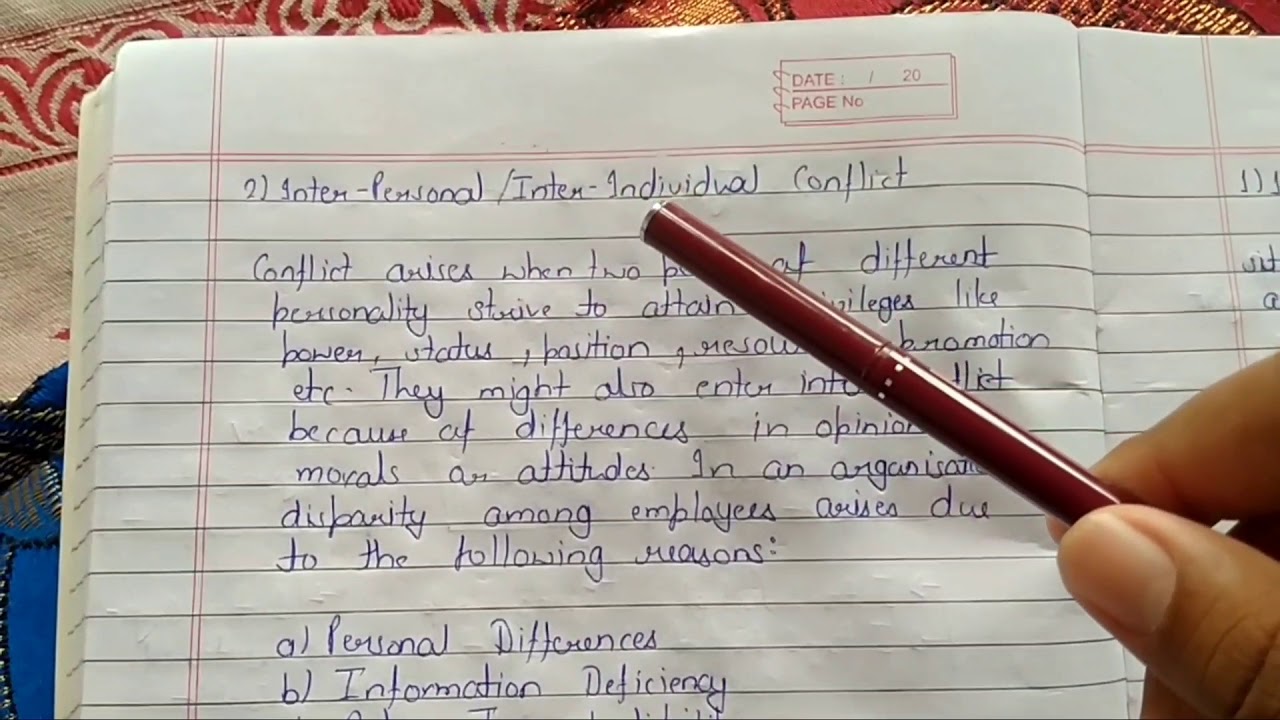 DATE : / 20
PAGE No
2) Inter-Personal/Inter-Individual Conflict
Conflict arises when two of different
personality strive to attain like
power, status, position, promotion
etc. They might also enter
because of differences in
morals or attitudes. In an
disparity among employees arises due
to the following reasons:
a) Personal Differences
b) Information Deficiency
1)